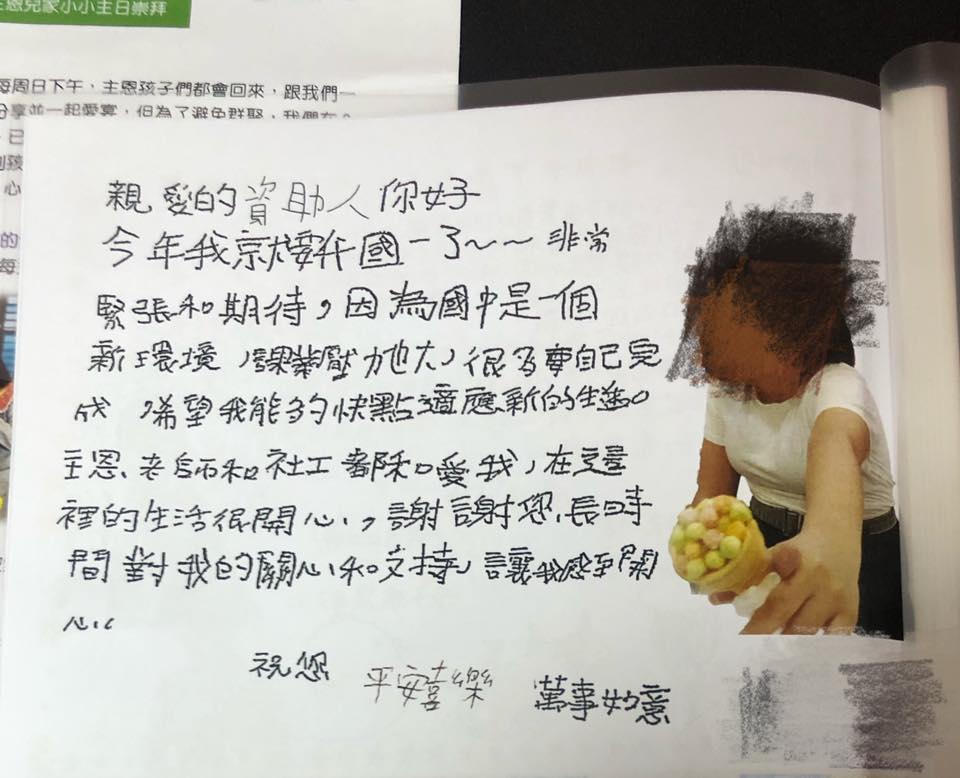 主恩兒家小小主日崇拜
每周日下午，主恩孩子們都會回來，跟我們一
分享並一起愛宴，但為了避免群聚，我們在
親愛的資助人你好
今年我就要升國一了～～非常
緊張和期待，因為國中是一個
新環境，課業壓力也大，很多要自己完
成，希望我能夠快點適應新的生活。
主恩老師和社工都愛我，在這
裡的生活很開心，謝謝您長時
間對我的關心和支持，讓我感到開
心。
祝您 平安喜樂 萬事如意